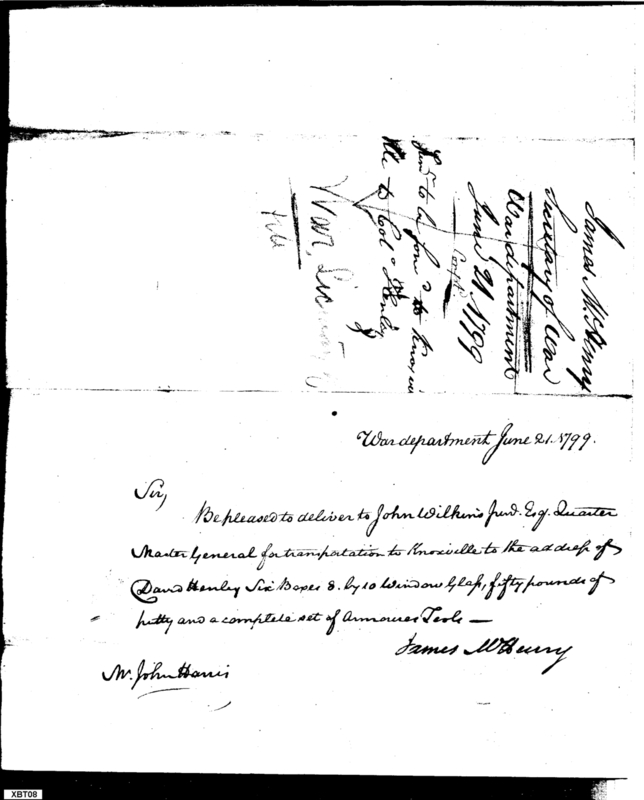 James McHenry
Secretary of War
War department
June 21. 1799
Copd
to be forwd to Knoxville
to Colo Henley
War, Secretary of
file
War department June 21. 1799.
Sir,
Be pleased to deliver to John Wilkins Junr. Esq. Quarter
Master General for transportation to Knoxville to the address of
David Henley Six Boxes 8. by 10 Window Glass, fifty pounds of
putty and a complete set of Armourers Tools —
James McHenry
Mr. John Harris
XBT08